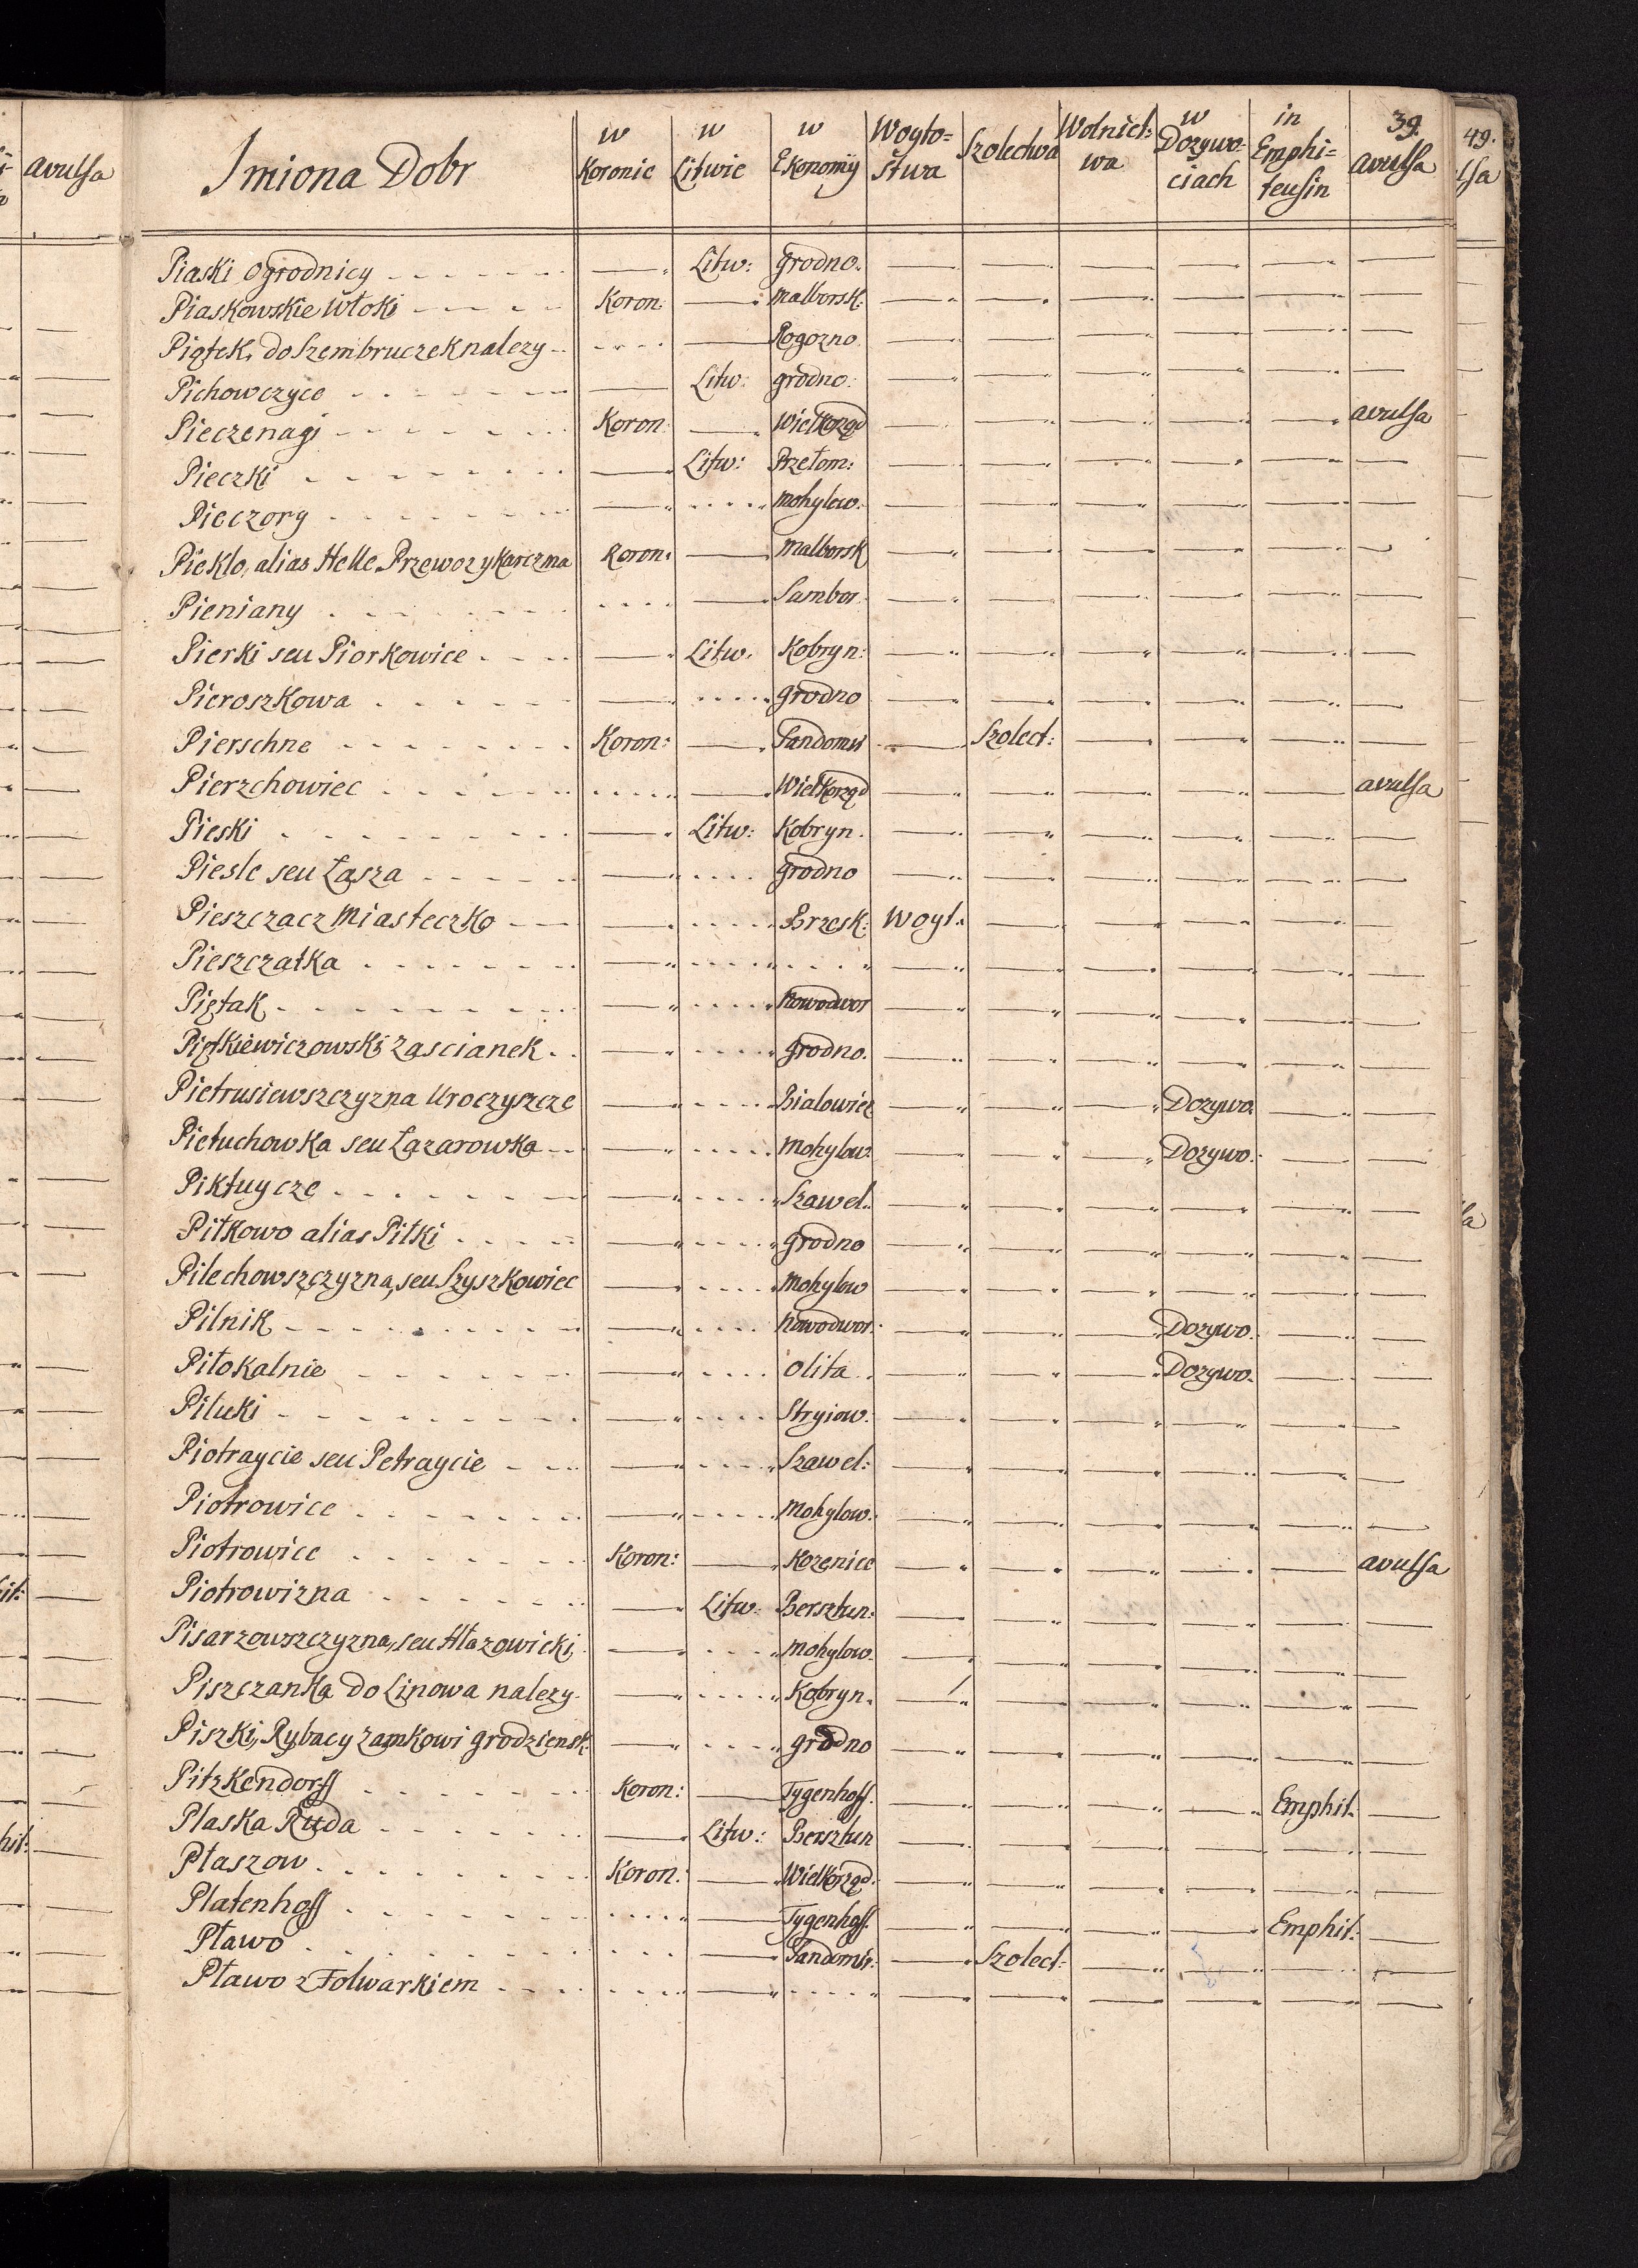 39.
Imiona Dobr | w Koronie | w Litwie | w Ekonomij | Woyto=stwa | Szolectwa | Wolnict:wa | w Dozywo-ciach | in Emphi=teusin | avulsa
Piaski Ogrodnicy - - - - - | — | Litw: | grodno. | — | — | — | — | — | —
Piaskowskie Włoki - - - - | Koron: | — | Malborsk: | — | — | — | — | — | —
Piątek, do Szembruczek nalezy - - | - - - - | — | Rogozno. | — | — | — | — | — | —
Pichowczyce - - - - - | — | Litw: | grodno: | — | — | — | — | — | —
Pieczenagi - - - - - | Koron: | — | Wielkorząd | — | — | — | — | — | avulsa
Pieczki - - - - - | — | Litw: | Przełom: | — | — | — | — | — | —
Pieczory - - - - - | — | - - - - | Mohylow: | — | — | — | — | — | —
Piekło, alias Helle Przewoz y Karczma | Koron: | — | Malborsk | — | — | — | — | — | —
Pieniany - - - - - | - - - - | — | Sambor: | — | — | — | — | — | —
Pierki seu Piorkowice - - - - | — | Litw: | Kobryn: | — | — | — | — | — | —
Pieroszkowa - - - - - | — | - - - - | grodno | — | — | — | — | — | —
Pierschne - - - - - | Koron: | — | Sandomir | — | Szolect: | — | — | — | —
Pierzchowiec - - - - - | - - - - | — | Wielkorząd | — | — | — | — | — | avulsa
Pieski - - - - - | — | Litw: | Kobryn. | — | — | — | — | — | —
Piesle seu Łasza - - - - - | — | - - - - | grodno | — | — | — | — | — | —
Pieszczacz Miasteczko - - - | — | - - - - | Brzesk: | Woyt: | — | — | — | — | —
Pieszczatka - - - - - | — | - - - - | - - - - | — | — | — | — | — | —
Piętak - - - - - | — | - - - - | Nowodwor | — | — | — | — | — | —
Piętkiewiczowski zascianek - - | — | - - - - | grodno. | — | — | — | — | — | —
Pietrusiewszczyzna Uroczyszcze | — | - - - - | Bialowież | — | — | — | Dozywo: | — | —
Pietuchowka seu Łazarowka - - | — | - - - - | Mohylow: | — | — | — | Dozywo: | — | —
Piktuycze - - - - - | — | - - - - | Szawel: | — | — | — | — | — | —
Piłkowo alias Piłki - - - - | — | - - - - | grodno | — | — | — | — | — | —
Pilechowszczyzna, seu Szyszkowiec | — | - - - - | Mohylow | — | — | — | — | — | —
Pilnik - - - - - | — | - - - - | Nowodwor: | — | — | — | Dozywo: | — | —
Piłokalnie - - - - - | — | - - - - | Olita. | — | — | — | Dozywo: | — | —
Piluki - - - - - | — | - - - - | Stryiow: | — | — | — | — | — | —
Piotraycie seu Petraycie - - - | — | - - - - | Szawel: | — | — | — | — | — | —
Piotrowice - - - - - | — | - - - - | Mohylow: | — | — | — | — | — | —
Piotrowice - - - - - | Koron: | — | Kozenice | — | — | — | — | — | avulsa
Piotrowizna - - - - - | — | Litw: | Bersztun: | — | — | — | — | — | —
Pisarzowszczyzna, seu Hłazowicki, | — | - - - - | Mohylow. | — | — | — | — | — | —
Piszczanka do Linowa nalezy - | — | - - - - | Kobryn. | — | — | — | — | — | —
Piszki, Rybacy zamkowi grodziensk: | — | - - - - | grodno | — | — | — | — | — | —
Pitzkendorff - - - - - | Koron: | — | Tygenhoff. | — | — | — | — | Emphit: | —
Plaska Ruda - - - - - | — | Litw: | Bersztun | — | — | — | — | — | —
Płaszow - - - - - | Koron: | — | Wielkorząd. | — | — | — | — | — | —
Platenhoff - - - - - | - - - - | — | Tygenhoff. | — | — | — | — | Emphit: | —
Pławo - - - - - | - - - - | — | Sandomir: | — | Szolect: | — | — | — | —
Pławo z Folwarkiem - - - - | - - - - | — | - - - - | — | — | — | — | — | —
avulsa
49.